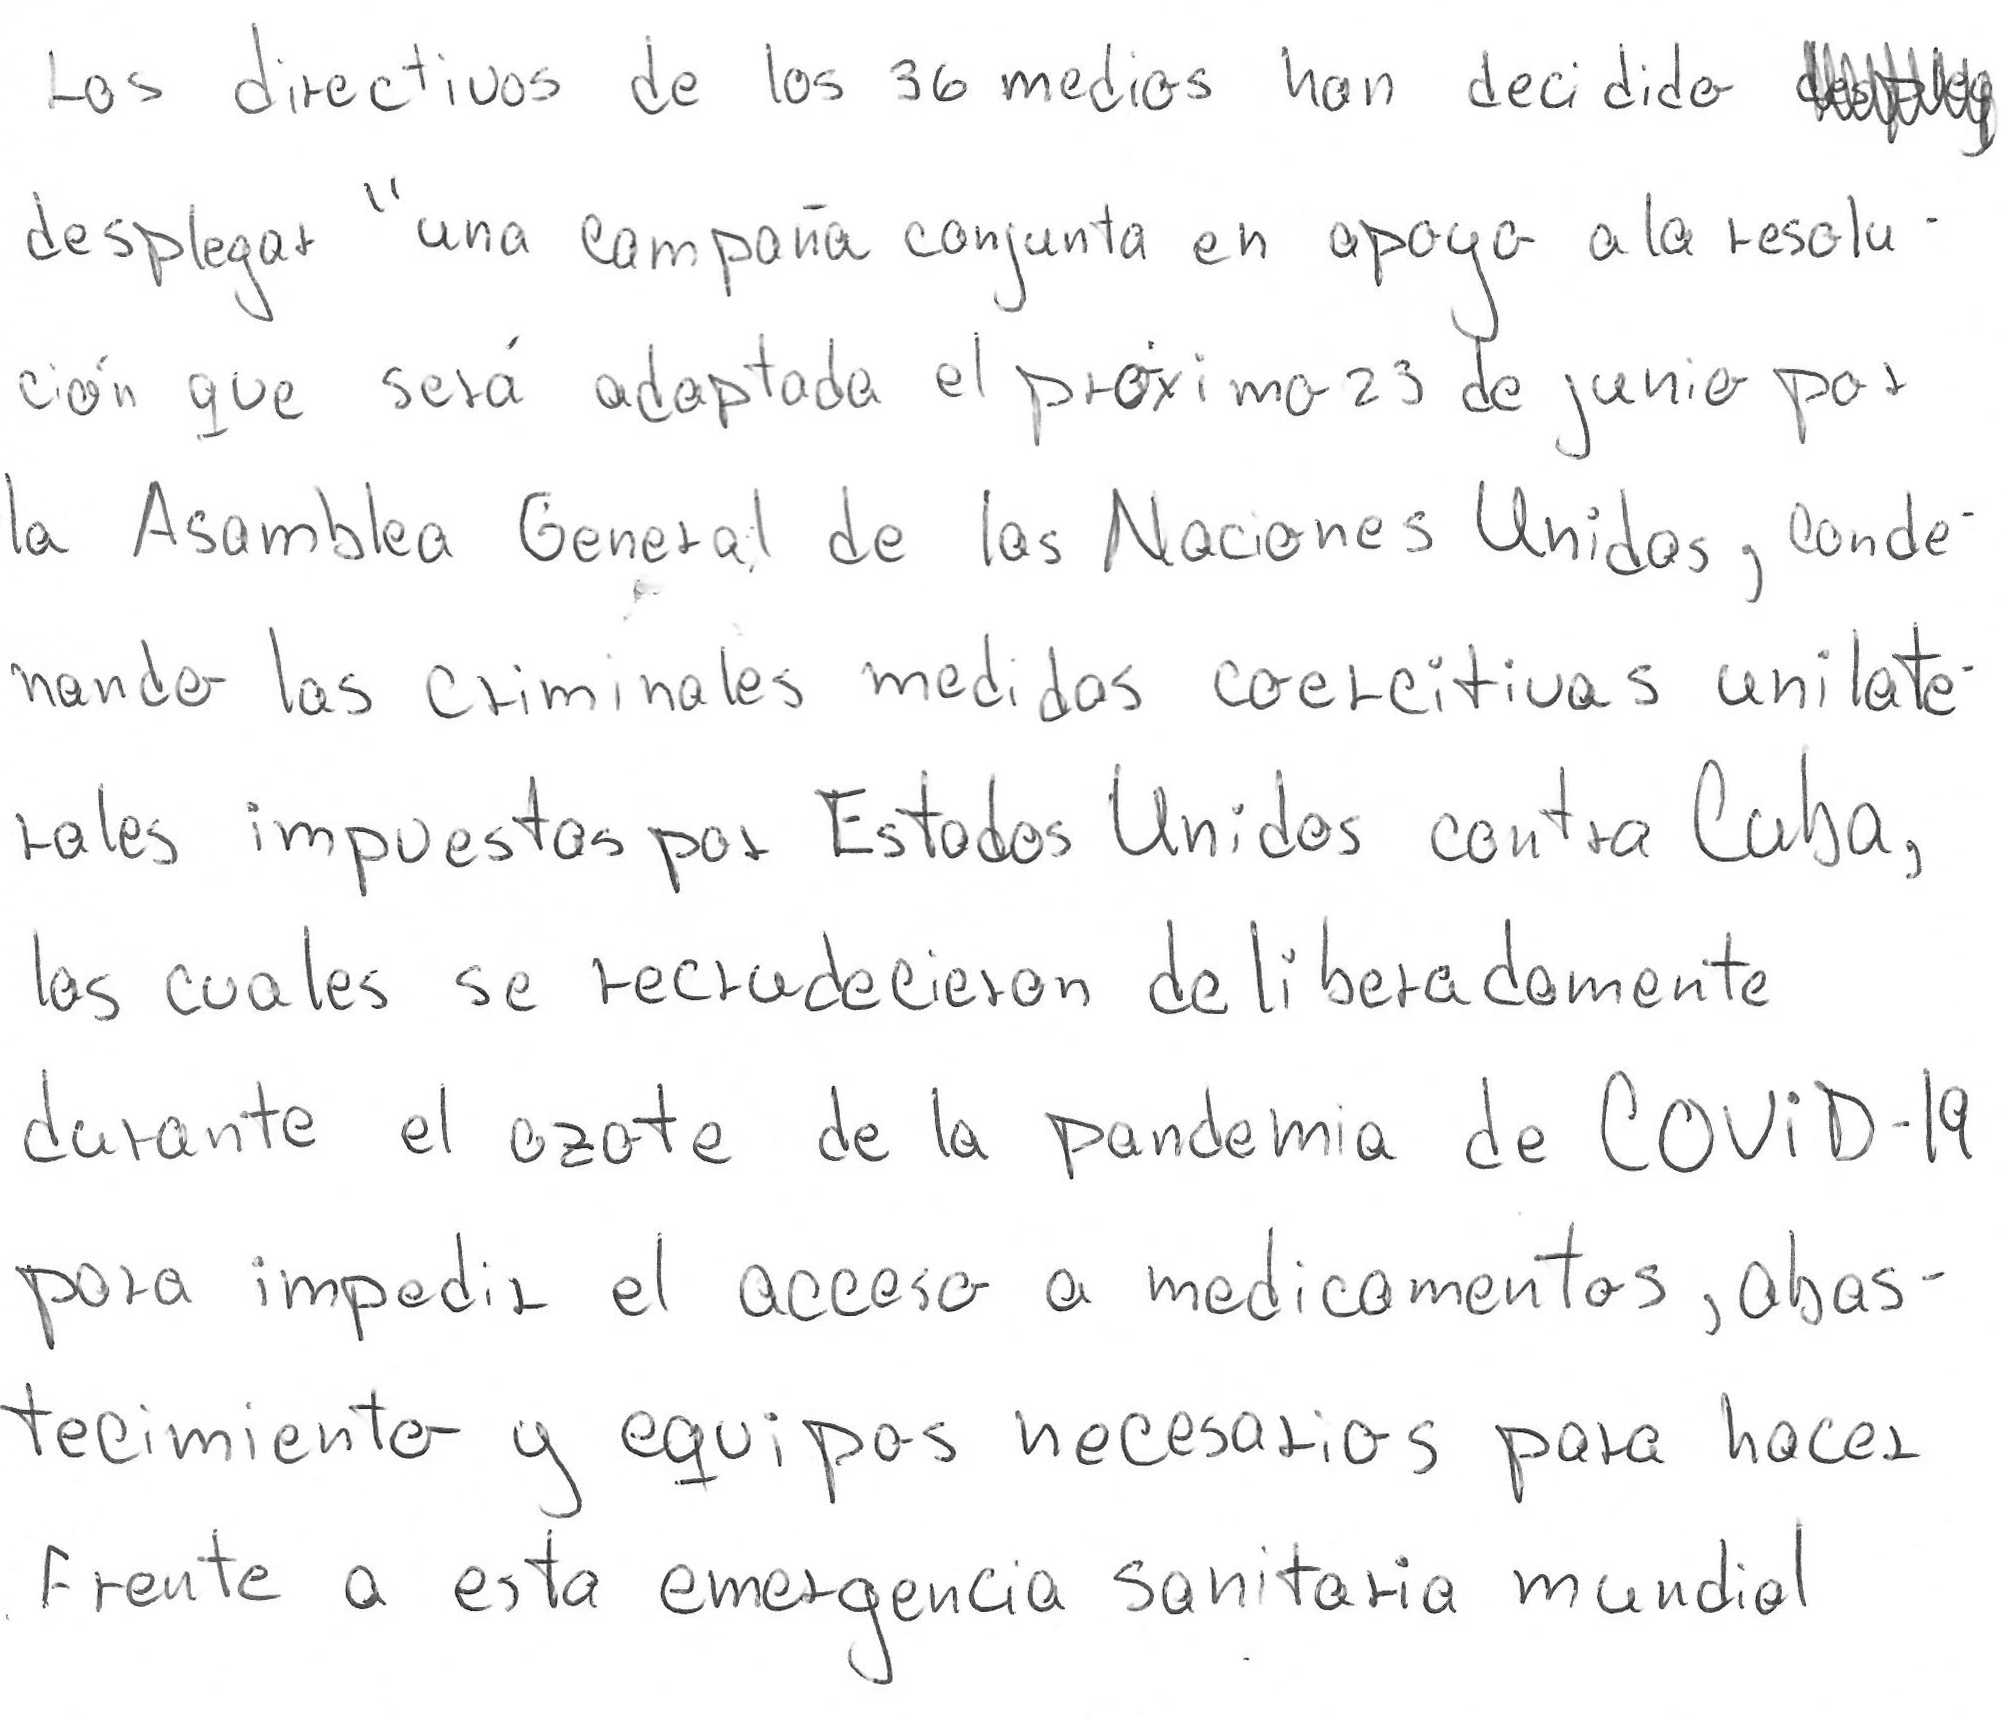 Los directivos de los 36 medios han decidido
desplegar "una campaña conjunta en apoyo a la resolu-
ción que será adoptada el próximo 23 de junio por
la Asamblea General de las Naciones Unidas, conde-
nando las criminales medidas coercitivas unilate-
rales impuestas por Estados Unidos contra Cuba,
las cuales se recrudecieron deliberadamente
durante el azote de la pandemia de COVID-19
para impedir el acceso a medicamentos, abas-
tecimiento y equipos necesarios para hacer
Frente a esta emergencia sanitaria mundial